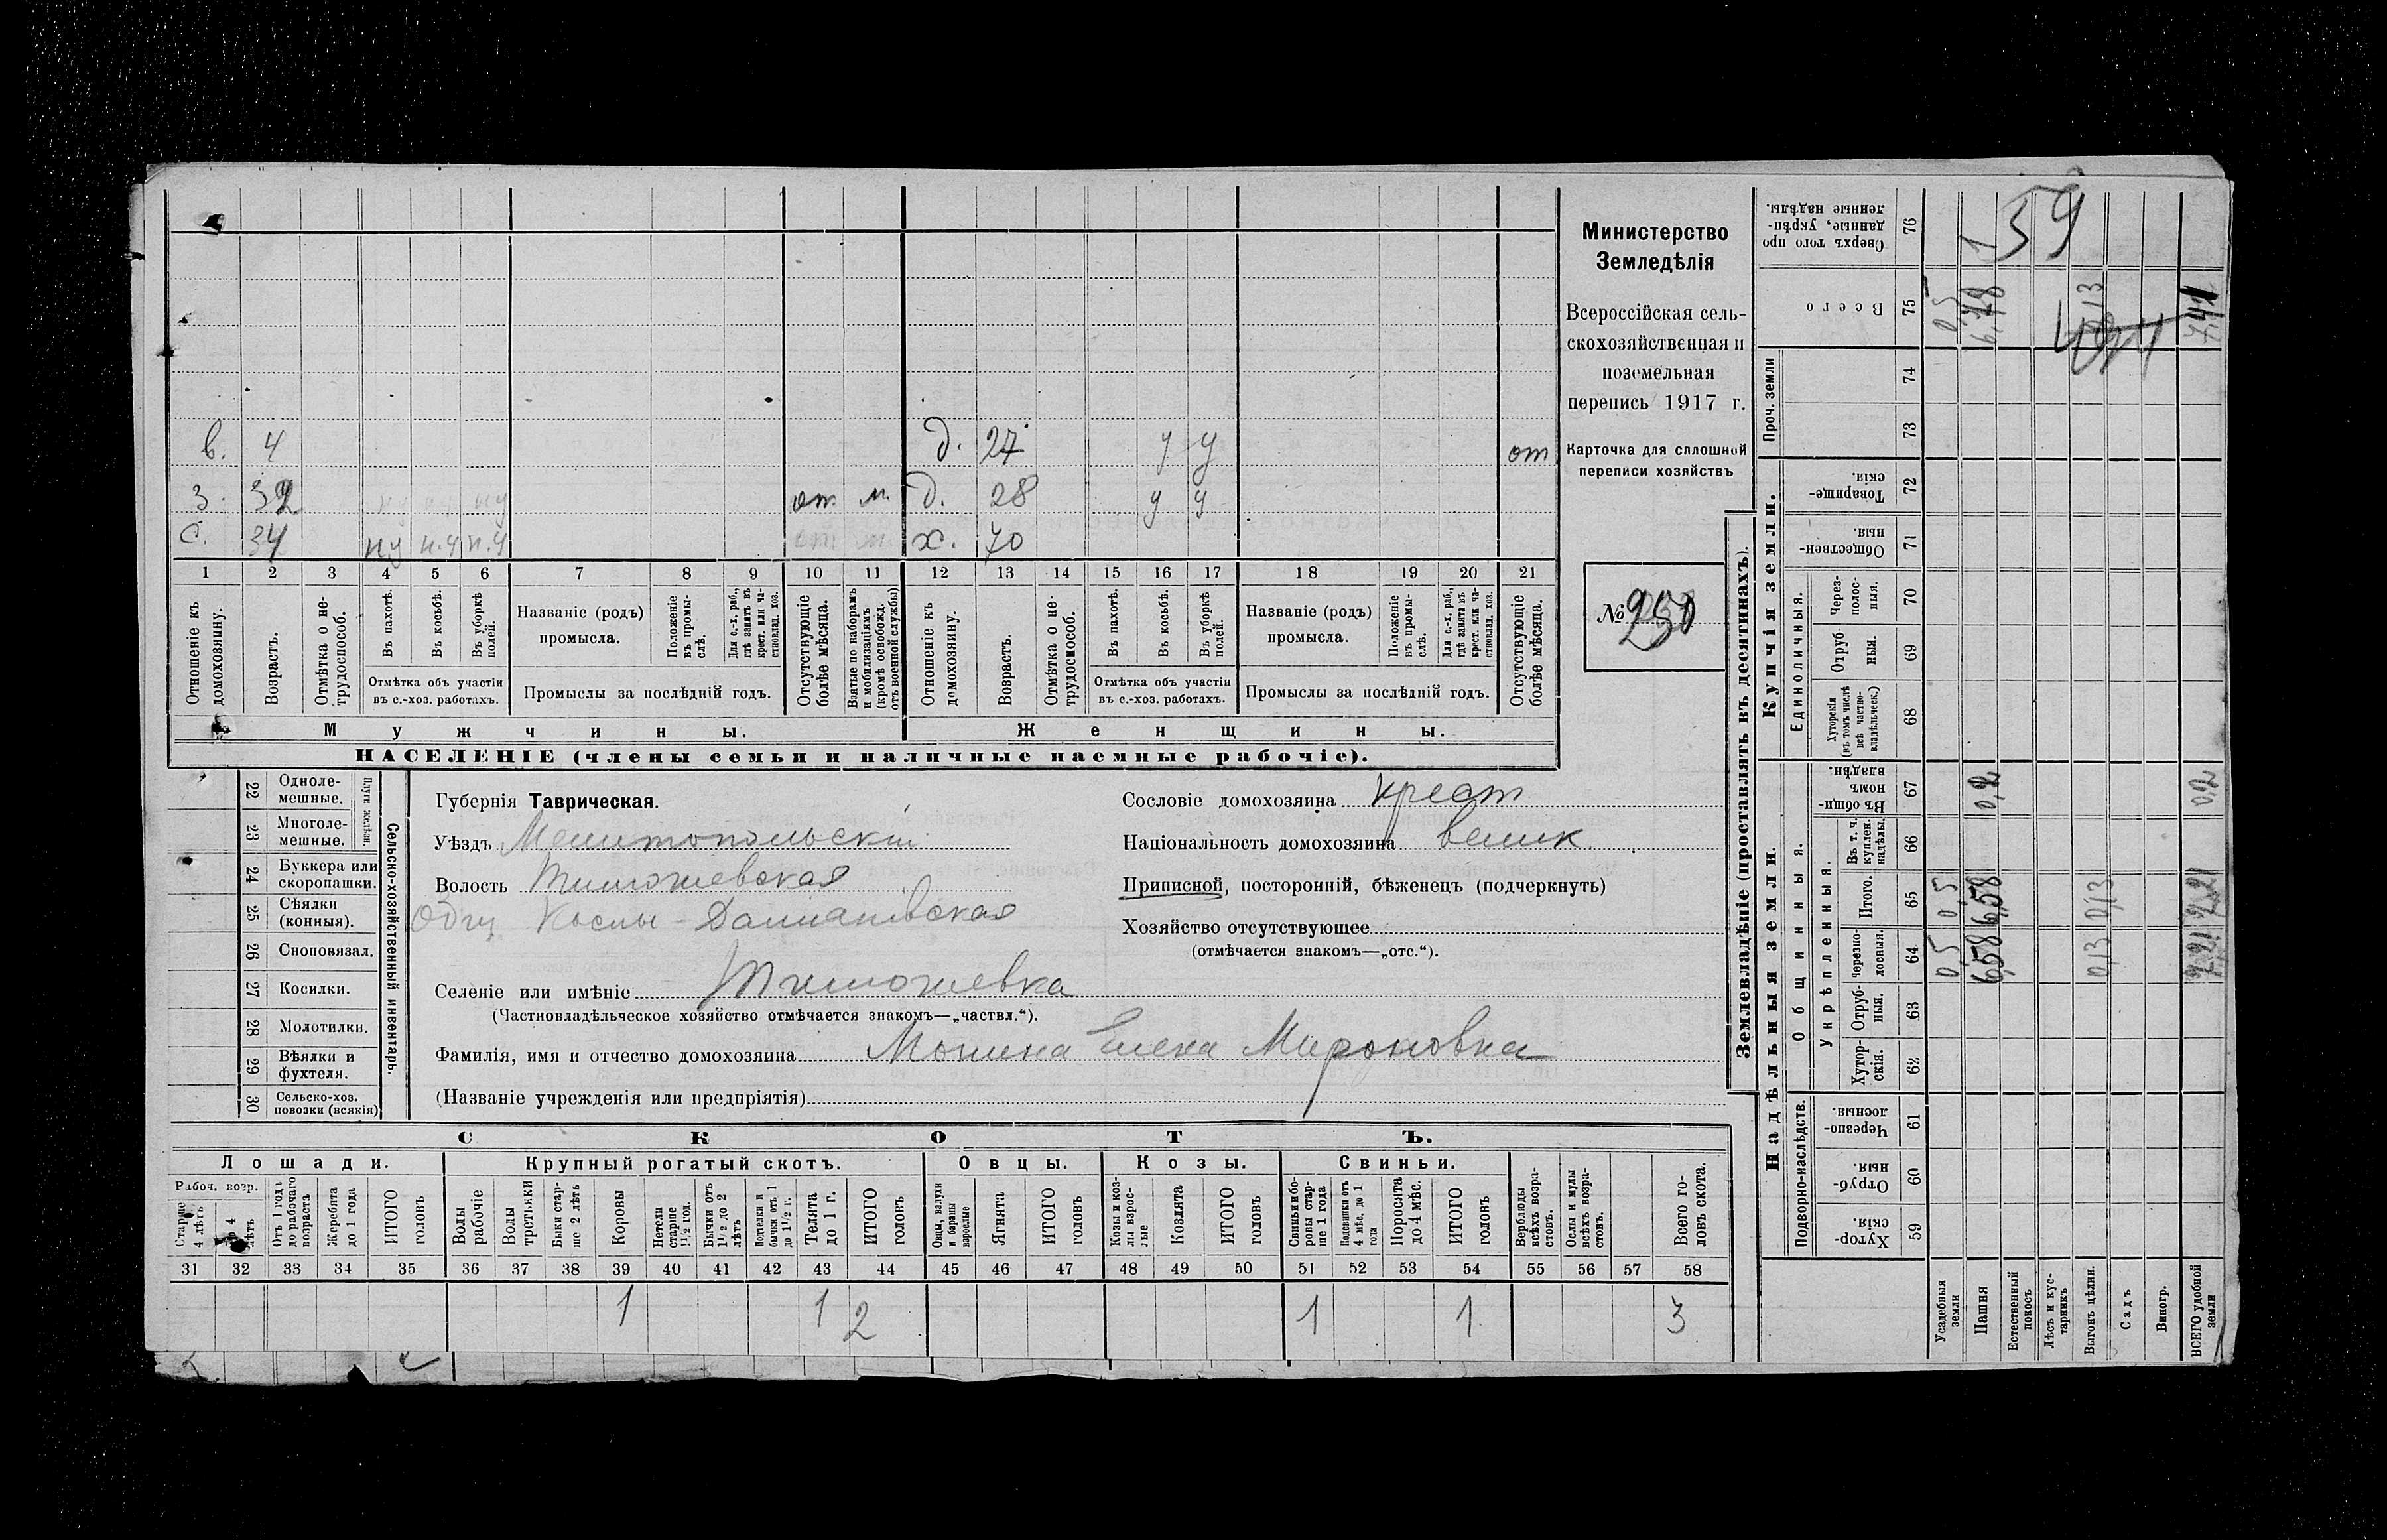 в. 4 д. 27 у у от
з. 32 от м. д. 28 у у
с. 34 н.у н.у н.у х. 70
1 2 3 4 5 6 7 8 9 10 11 12 13 14 15 16 17 18 19 20 21
Отношеніе къ домохозяину.
Возрастъ.
Отмѣтка о нетрудоспособ.
Въ пахотѣ.
Въ косьбѣ.
Въ уборкѣ полей.
Отмѣтка объ участіи въ с.-хоз. работахъ.
Названіе (родъ) промысла.
Положеніе въ промыслѣ.
Для с.-х. раб., гдѣ занятъ въ крест. или частновлад. хоз.
Промыслы за послѣдній годъ.
Отсутствующіе болѣе мѣсяца.
Взятые по наборамъ и мобилизаціямъ (кромѣ освобожд. отъ военной службы)
Отношеніе къ домохозяину.
Возрастъ.
Отмѣтка о нетрудоспособ.
Въ пахотѣ.
Въ косьбѣ.
Въ уборкѣ полей.
Отмѣтка объ участіи въ с.-хоз. работахъ.
Названіе (родъ) промысла.
Положеніе въ промыслѣ.
Для с.-х. раб., гдѣ занята въ крест. или частновлад. хоз.
Промыслы за послѣдній годъ.
Отсутствующіе болѣе мѣсяца.
Мужчины. Женщины.
НАСЕЛЕНІЕ (члены семьи и наличные наемные рабочіе).
Министерство
Земледѣлія
Всероссійская сель-
скохозяйственная и
поземельная
перепись 1917 г.
Карточка для сплошной
переписи хозяйствъ
№ 250
22 Одноле-
мешные.
23 Многоле-
мешные.
Плуги желѣзн.
24 Буккера или
скоропашки.
25 Сѣялки
(конныя).
26 Сноповязал.
27 Косилки.
28 Молотилки.
29 Вѣялки и
фухтеля.
30 Сельско-хоз.
повозки (всякія)
Сельско-хозяйственный инвентарь.
Губернія Таврическая.
Уѣздъ Мелитопольскій
Волость Тимошевская
Общ Космы-Даміановская
Селеніе или имѣніе Тимошевка
(Частновладѣльческое хозяйство отмѣчается знакомъ—„частвл.“).
Фамилія, имя и отчество домохозяина Мошна Елена Мироновна
(Названіе учрежденія или предпріятія)
Сословіе домохозяина крест
Національность домохозяина велик.
Приписной, посторонній, бѣженецъ (подчеркнуть)
Хозяйство отсутствующее
(отмѣчается знакомъ—„отс.“).
СКОТЪ.
Лошади. Крупный рогатый скотъ. Овцы. Козы. Свиньи.
Рабоч. возр.
Старше 4 лѣтъ
До 4 лѣтъ
Отъ 1 года до рабочаго возраста
Жеребята до 1 года
ИТОГО головъ
Волы рабочіе
Волы гростьяки
Быки старше 2 лѣтъ
Коровы
Нетели старше 1½ год.
Бычки отъ 1½ до 2 лѣтъ
Подтелки и бычки отъ 1 до 1½ г.
Телята до 1 г.
ИТОГО головъ
Овцы, валухи и бараны взрослые
Ягнята
ИТОГО головъ
Козы и козлы взрослые
Козлята
ИТОГО головъ
Свиньи и боровы старше 1 года
Подсвинки отъ 4 мѣс. до 1 года
Поросята до 4 мѣс.
ИТОГО головъ
Верблюды всѣхъ возрастовъ.
Ослы и мулы всѣхъ возрастовъ.
Всего головъ скота.
31 32 33 34 35 36 37 38 39 40 41 42 43 44 45 46 47 48 49 50 51 52 53 54 55 56 57 58
1 1 2 1 1 3
Землевладѣніе (проставлять въ десятинахъ).
Надѣльныя земли.
Подворно-наслѣдств.
Хуторскія. 59
Отрубныя. 60
Черезполосныя. 61
Общинныя.
Укрѣпленныя.
Хуторскія. 62
Отрубныя. 63
Черезполосныя. 64
Итого. 65
Въ т. ч. куплен. надѣлы. 66
Въ общинномъ владѣн. 67
Купчія земли.
Единоличныя.
Хуторскія (въ томъ числѣ всѣ частновладѣльческ.) 68
Отрубныя. 69
Черезполосныя. 70
Общественныя. 71
Товарищескія. 72
Проч. земли
73 74
Всего 75
Сверхъ того проданные, укрѣпленные надѣлы. 76
Усадебныя земли 0,5 0,5 0,5
Пашня 6,58 6,58 0,2 6,78 1
Естественный покосъ
Лѣсъ и кустарникъ
Выгонъ цѣлин. 0,13 0,13 0,13
Садъ
Виногр.
ВСЕГО удобной земли 7,21 7,21 0,2 7,41
59